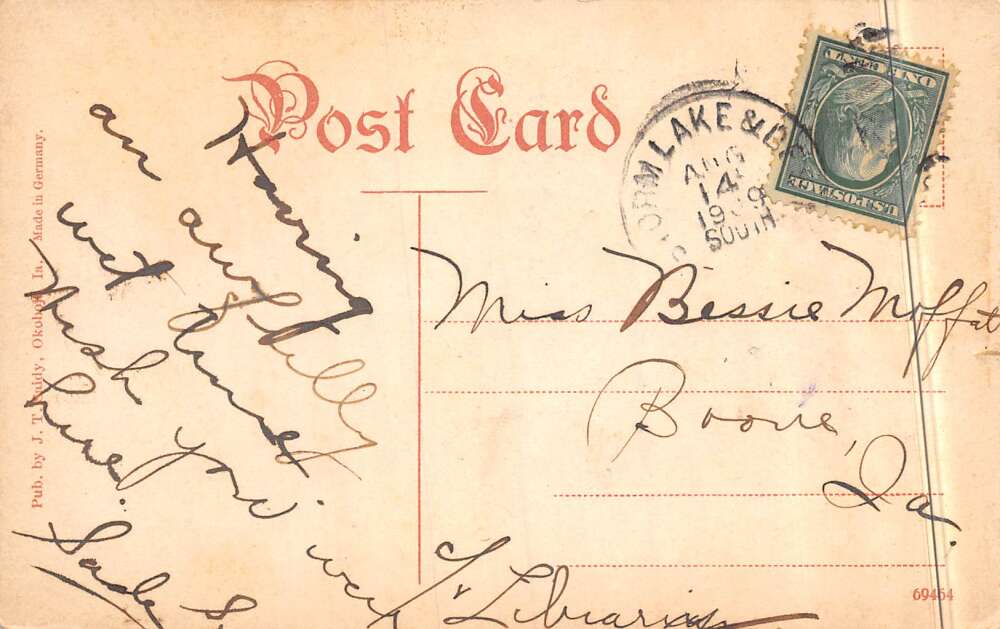 Post Card
STORM LAKE & D
AUG
14
1909
SOUTH
ONE CENT
U.S. POSTAGE
Having
an awfully
wet time.
Wish you were
here.
Sade S.
Miss Bessie Moffat
Boone,
Ia.
c/o Librarian
Pub. by J. T. Ruddy, Okoboji, Ia. Made in Germany.
69464